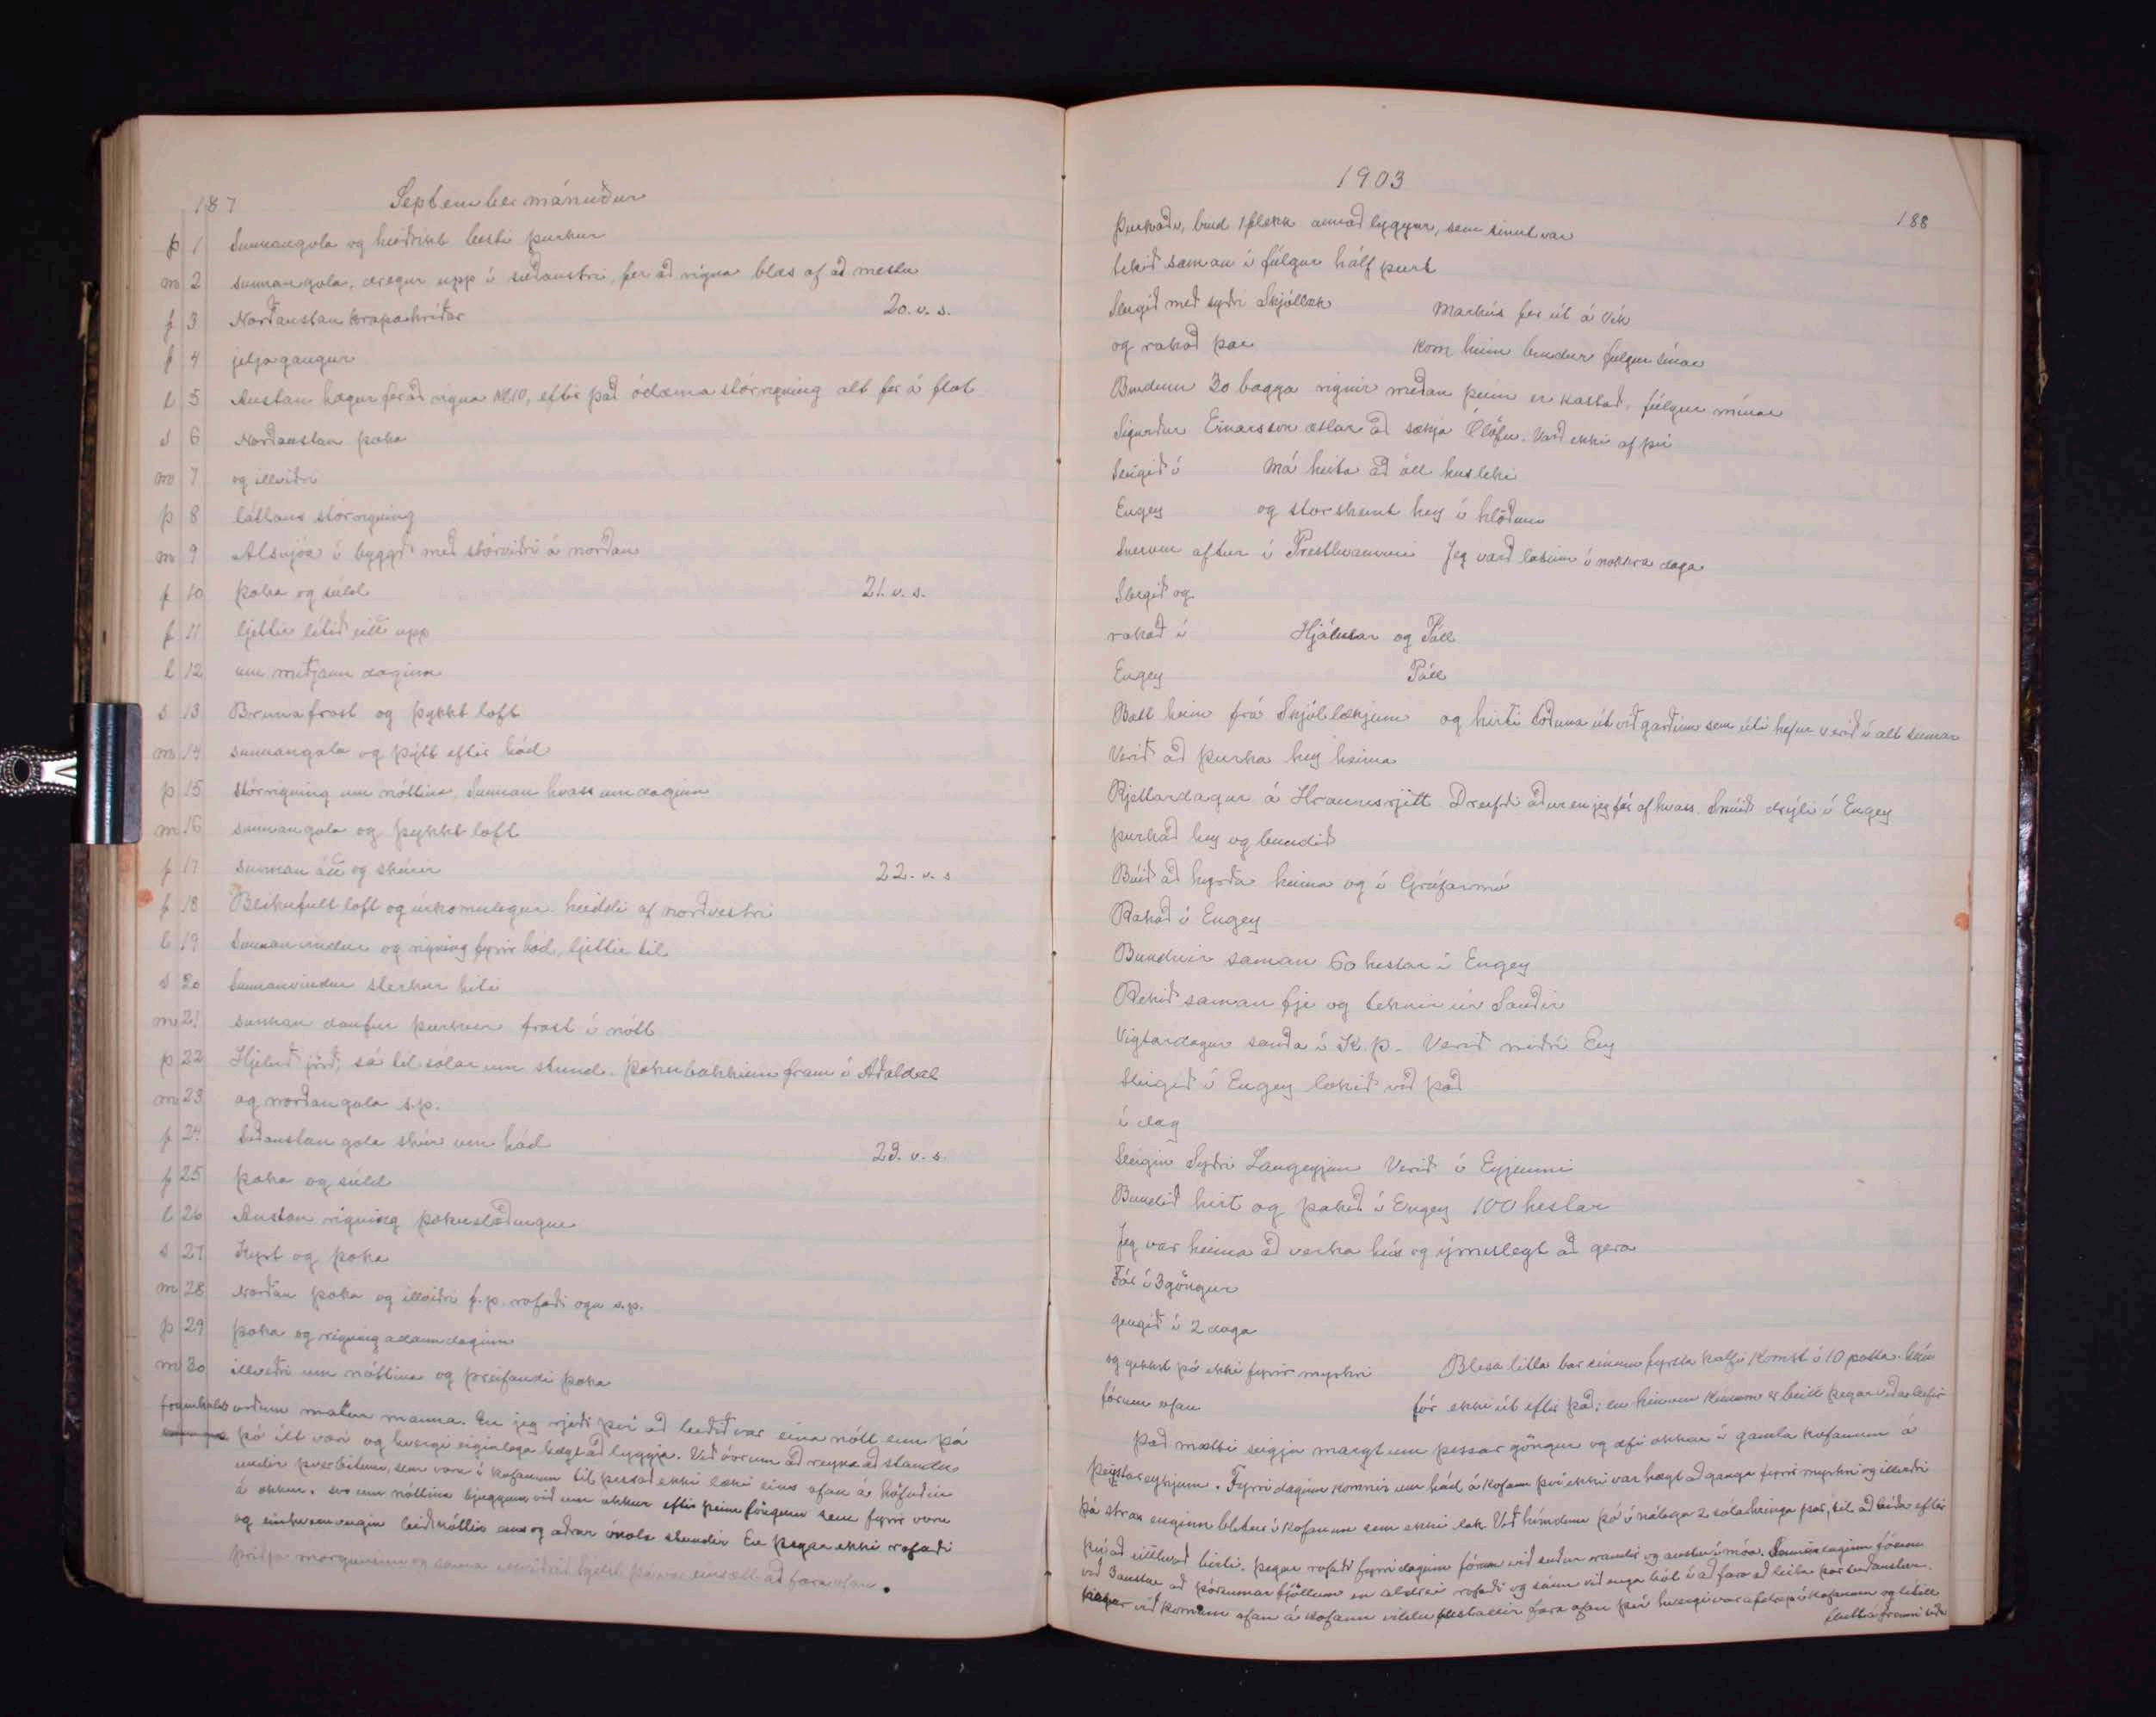 187 Septembermánuður
þ 1 Sunnangola og heiðríkt besti þurkur
m 2 sunnangola, dregur upp í suðaustri, fer að rigna blæs af að mestu
f 3 Norðaustan krapahríðar 20. v. s.
f 4 jeljagangur
l 5 Austan hægur fer að rigna kl 10, eftir það ódæma stórrigning alt fer á flot
s 6 Norðaustan þoka
m 7 og illviðri
þ 8 látlaus stórrigning
m 9 Alsnjóa í byggð með stórviðri á norðan
f 10 þoka og súld 21. v. s.
f 11 ljettir lítið eitt upp
l 12 um miðjann daginn
s 13 Brunafrost og þykkt loft
m 14 sunnangola og þýtt eftir hád
þ 15 stórrigning um nóttina. Sunnan hvass um daginn
m 16 sunnangola og þykkt loft
f 17 sunnan átt og skúrir 22. v. s
f 18 Bleikufult loft og úrkomulegur heiddi af norðvestri
l 19 Sunnanvindur og rigning fyrir hád, ljettir til
s 20 Sunnanvindur sterkur hiti
m 21 sunnan daufur þurkur frost í nótt
þ 22 Hjeluð jörð, sá til solar um stund. þokubakkinn fram í Aðaldal
m 23 og norðangola s.p.
f 24 Suðaustan gola skúr um hád 23. v. s.
f 25 þoka og súld
l 26 Austan rigning þokuslæðingur
s 27 Kyrt og þoka
m 28 Norðan þoka og illviðri f.p. rofaði ögn s.p.
þ 29 þoka og rigning allann daginn
m 30 illviðri um nóttina og þreifandi þoka
framhald urðum matar manna. En jeg rjeði því að beðið var eina nótt enn þá
þó ilt væri og hvergi eiginlega hægt að lyggja. Við vórum að reyna að standa
undir þverbitum, sem voru í kofanum til þess að ekki læki eins ofan á höfuðin
á okkur. svo um nóttina bjuggum við um okkur eftir þeim föngum sem fyrir voru
og einhvernveigin leið nóttin eins og aðrar stundir En þegar ekki rofaði
þriðja morguninn og sama illviðrið hjelst þá var sjálfsagt að fara ofan.
1903
188
Þurkaði, bund. 1 flekk annað lyggur, sem hirt var
tekið saman í fúlgur hálf þurt
Slegið með syðri Skjóllæk Markús fer út á Vík
og rakað þar kom heim bundnar fúlgur sínar
Bundum 30 bagga rignir meðan þeim er kastað, fúlgur mínar
Sigurður Einarsson ætlar að sækja Ólöfu. Varð ekki af því
Sleigið í Má heita að öll hus leki
Engey og stor skemt hey í hlöðum
Snerum aftur í Presthvammi Jeg varð lasinn í nokkra daga
Slegið og
rakað í Hjálmar og Páll
Engey Páll
Batt heim frá Skjóllækjum og hirti töðuna út við garðinn sem úti hefur verið í alt sumar
Verið að þurka hey heima
Rjettardagur á Hraunsrjett Dreifði áður en jeg fór af hvass. Snúið drýli í Engey
þurkað hey og bundið
Búið að hyrða heima og í Grófarmó
Rakað í Engey
Bundnir saman 60 hestar í Engey
Rekið saman fje og teknir úr Sauðir
Vigtardagur sauða í K.þ. Verið niðrí Ey
Sleigið í Engey lokið við það
í dag
Sleigin Syðri Langeyjan Verið í Eyjunni
Bundið hirt og þakið í Engey 100 hestar
Jeg var heima að verka hús og ýmislegt að gera
Fór í 3 göngur
gengið í 2 daga
og gekkst þó ekki fyrir myrkri Blesa litla bar sínum fyrsta kalfi komst í 10 potta. hún
fórum ofan fór ekki út eftir það; en hinum kúnum er beitt þegar veður leyfir
Það mætti seigja margt um þessar göngur og æfi okkar í gamla kofanum á
Þeistareykjum. Fyrri daginn komnir um hád á kofann því ekki var hægt að ganga fyrir myrkri og illviðri
þá strax enginn blettur í kofanum sem ekki lak. Við hímdum þó í nálega 2 sólarhringa þar, til að bíða eftir
því að eitthvað birti. þegar rofaði fyrri daginn fórum við suður randir og austur í móa. Seinni daginn fórum
við 3 austur að Þórunnar fjöllum en aldrei rofaði og sáum við enga ból í að fara að leita þar suðaustur.
þegar við komum ofan á kofann vildu flestallir fara ofan því hvergi var afdrep í kofanum og lítill
flutt á fremri síðu